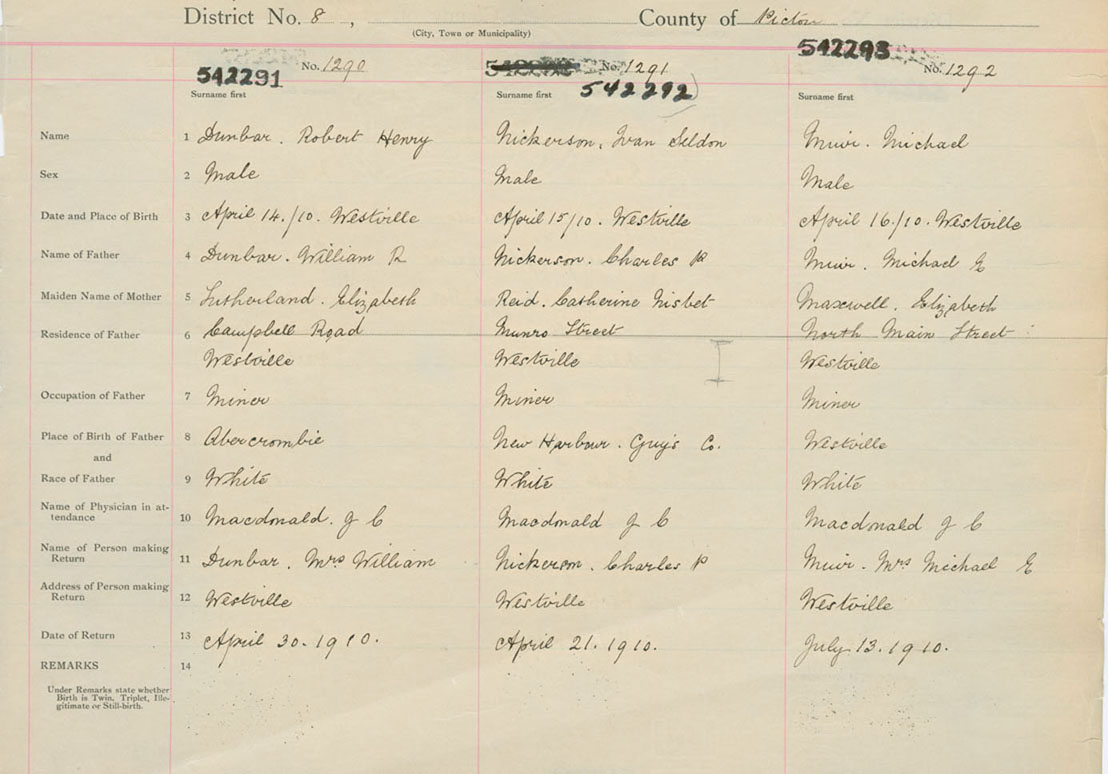 District No. 8, County of Pictou
(City, Town or Municipality)
542291 No. 1290 No. 1291 542293 No. 1292
Surname first Surname first 542292 Surname first
Name 1 Dunbar. Robert Henry Nickerson, Ivan Seldon Muir. Michael
Sex 2 Male Male Male
Date and Place of Birth 3 April 14./10. Westville April 15/10. Westville April 16./10. Westville
Name of Father 4 Dunbar. William R Nickerson. Charles P Muir. Michael E
Maiden Name of Mother 5 Sutherland. Elizabeth Reid. Catherine Nisbet Maxwell. Elizabeth
Residence of Father 6 Campbell Road Munro Street North Main Street
Westville Westville Westville
Occupation of Father 7 Miner Miner Miner
Place of Birth of Father 8 Abercrombie New Harbour. Guy's Co. Westville
and
Race of Father 9 White White White
Name of Physician in at-
tendance 10 Macdonald. J C Macdonald J C Macdonald J C
Name of Person making
Return 11 Dunbar. Mrs William Nickerson. Charles P Muir. Mrs Michael E
Address of Person making
Return 12 Westville Westville Westville
Date of Return 13 April 30. 1910. April 21. 1910. July 13. 1910.
REMARKS 14
Under Remarks state whether
Birth is Twin, Triplet, Ille-
gitimate or Still-birth.